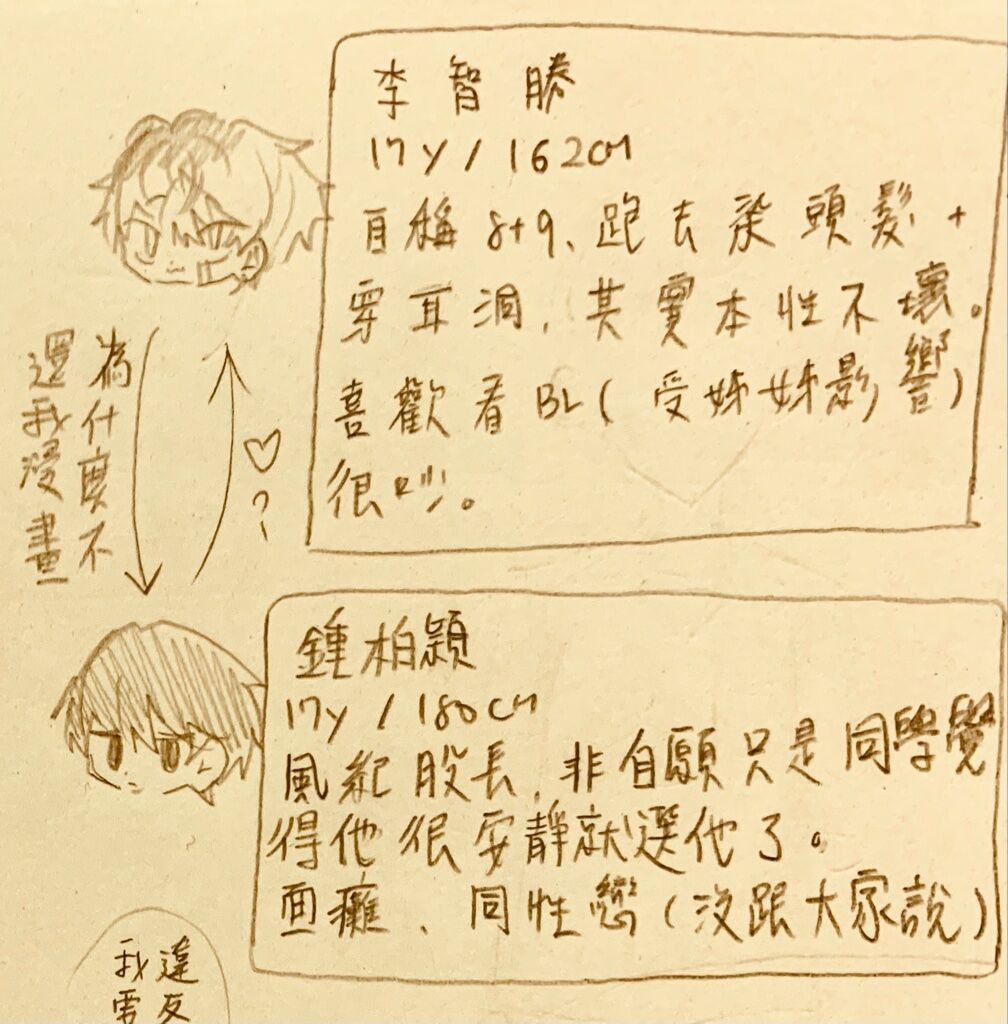 李智勝
17y/162cm
自稱8+9、跑去染頭髮+
穿耳洞,其實本性不壞。
喜歡看BL(受姊姊影響)
很吵。
為什麼不
還我漫畫
♡?
鍾柏穎
17y/180cm
風紀股長,非自願只是同學覺
得他很安靜就選他了。
面癱、同性戀(沒跟大家說)
違反
我需